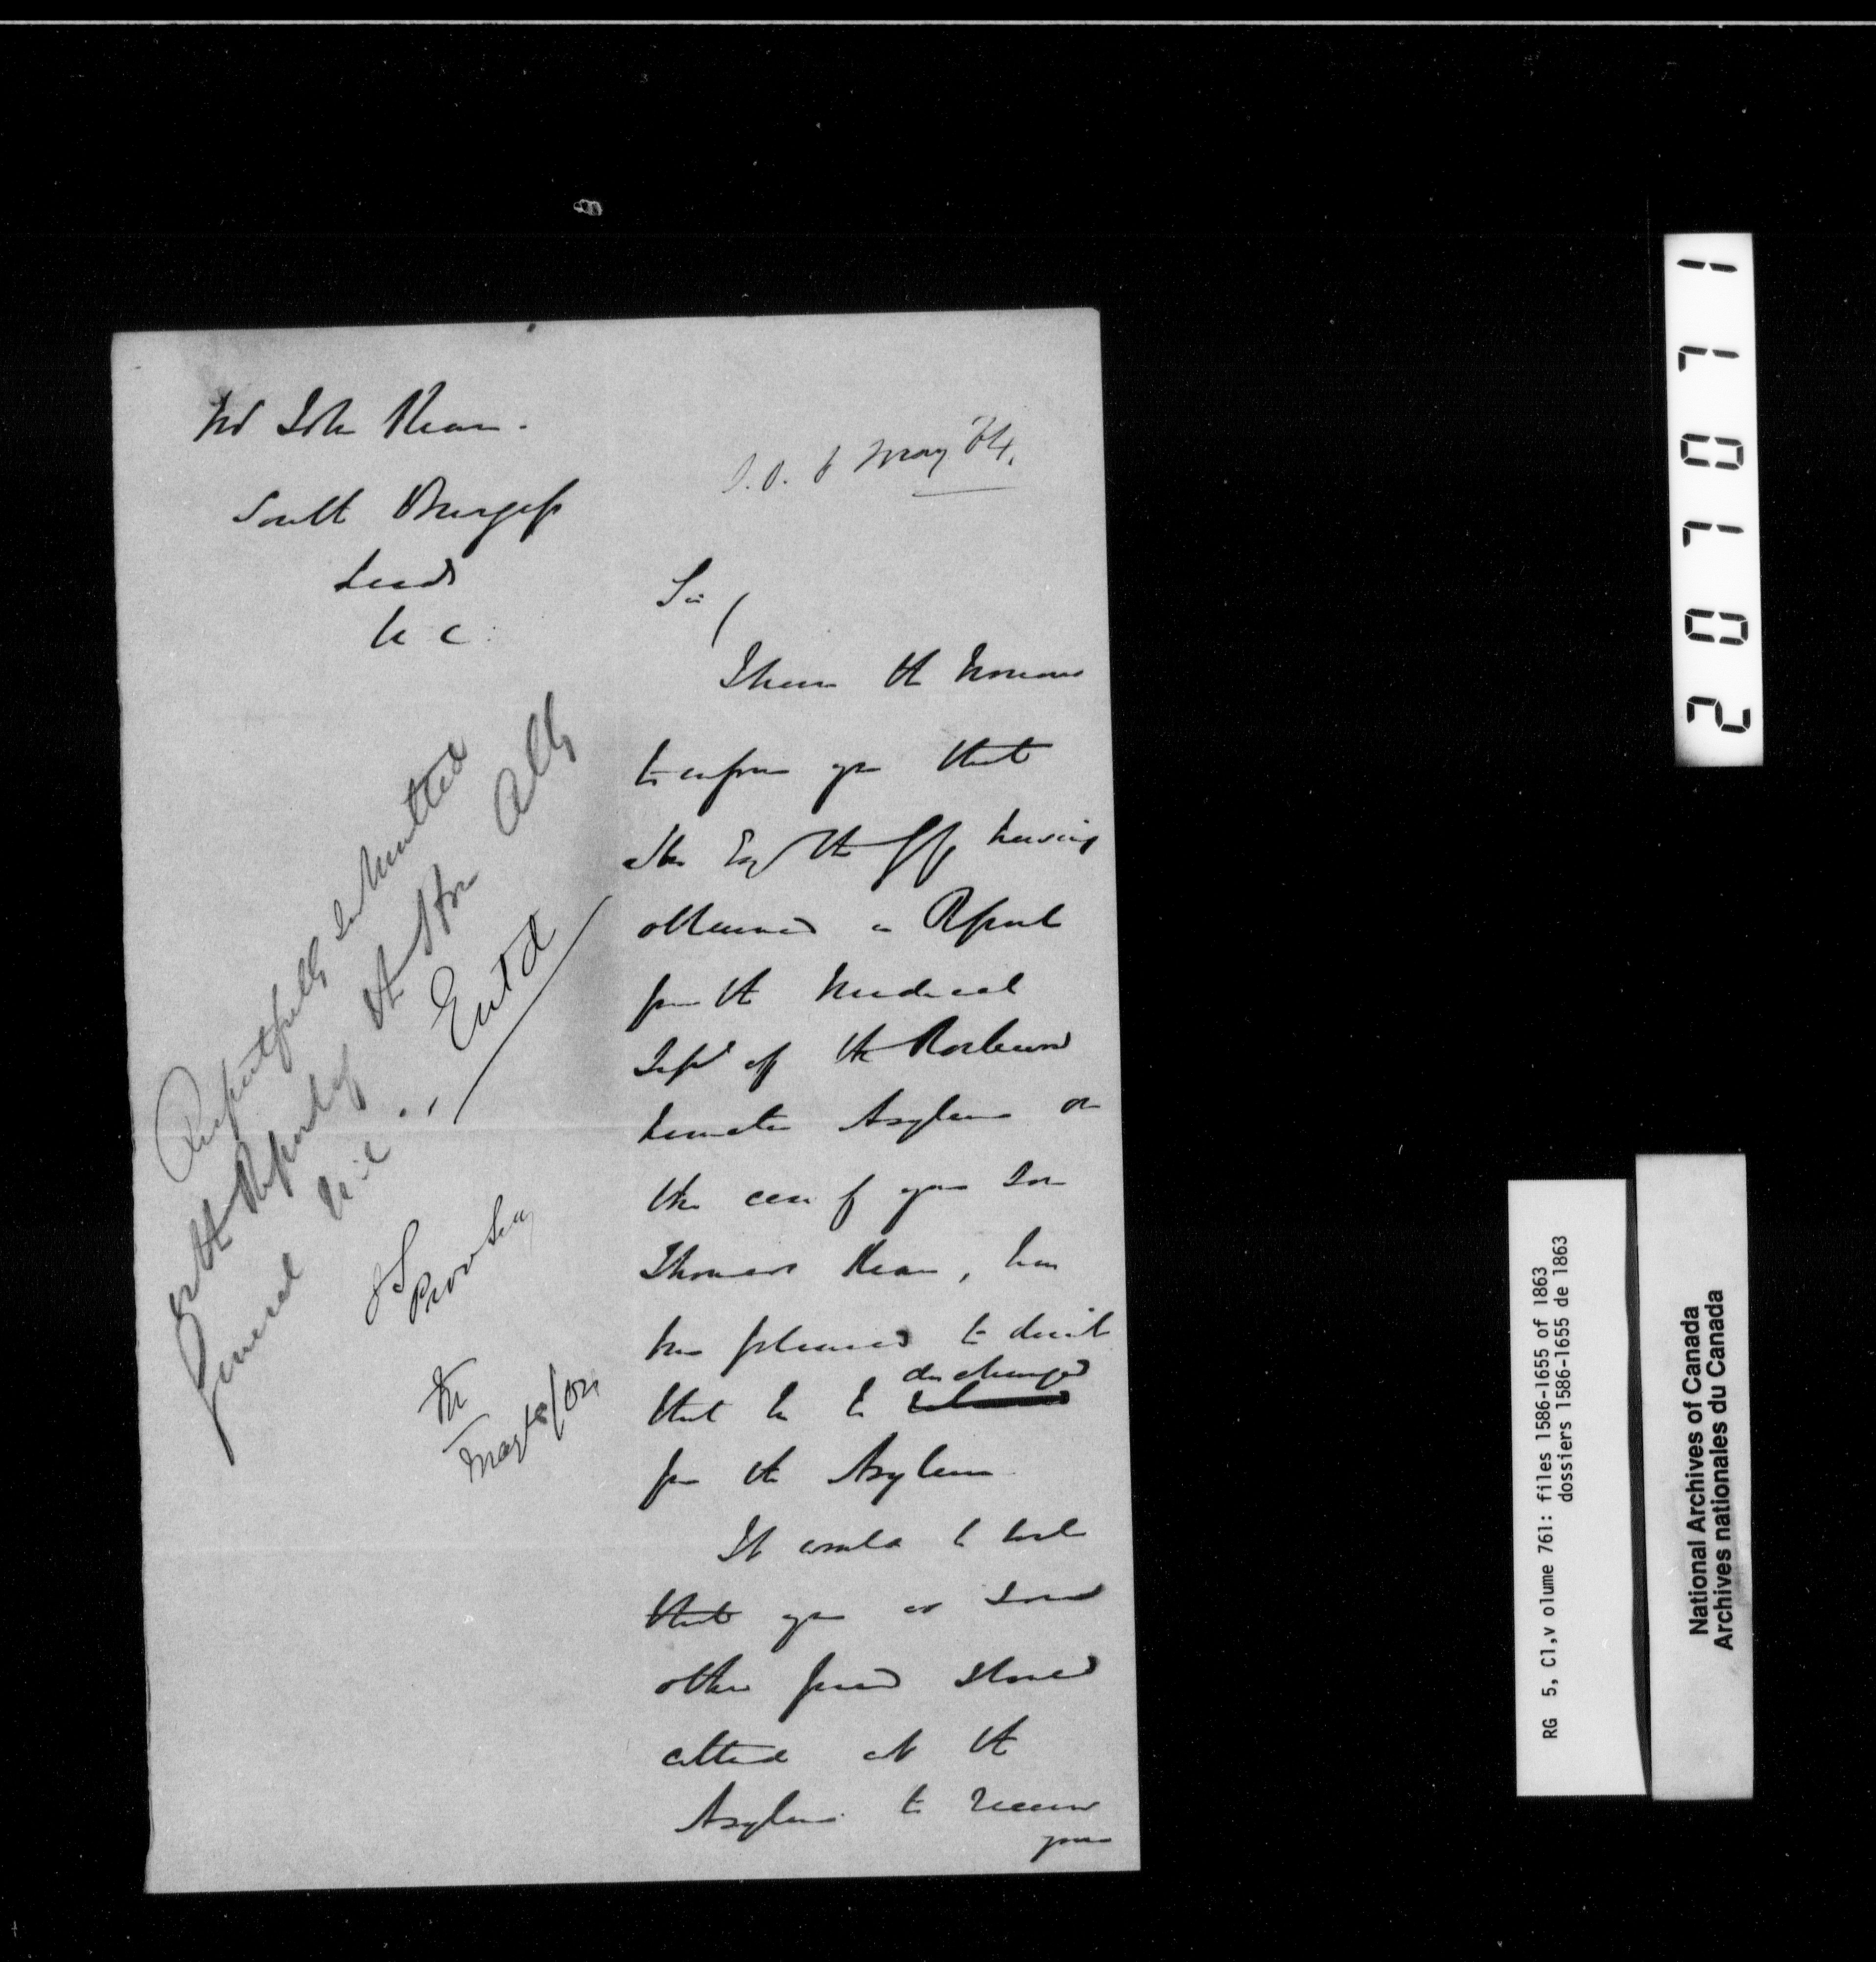 Mr John Kean.
South Burgess
Leeds
U C.
S.O. 6 May 64.
Sir
I have the honour
to inform you that
His Exy the GG, having
obtained a Report
from the Medical
Supt of the Rockwood
Lunatic Asylum on
the case of your Son
Thomas Kean, has
been pleased to direct
that he be discharged
from the Asylum
It would be well
that you or some
other friend should
attend at the
Asylum to receive
your
Respectfully submitted
for the Report of the Hon Atty
General U.C.
Entd
Prov Secy
May
201071
RG 5, C1,v olume 761: files 1586-1655 of 1863
dossiers 1586-1655 de 1863
National Archives of Canada
Archives nationales du Canada